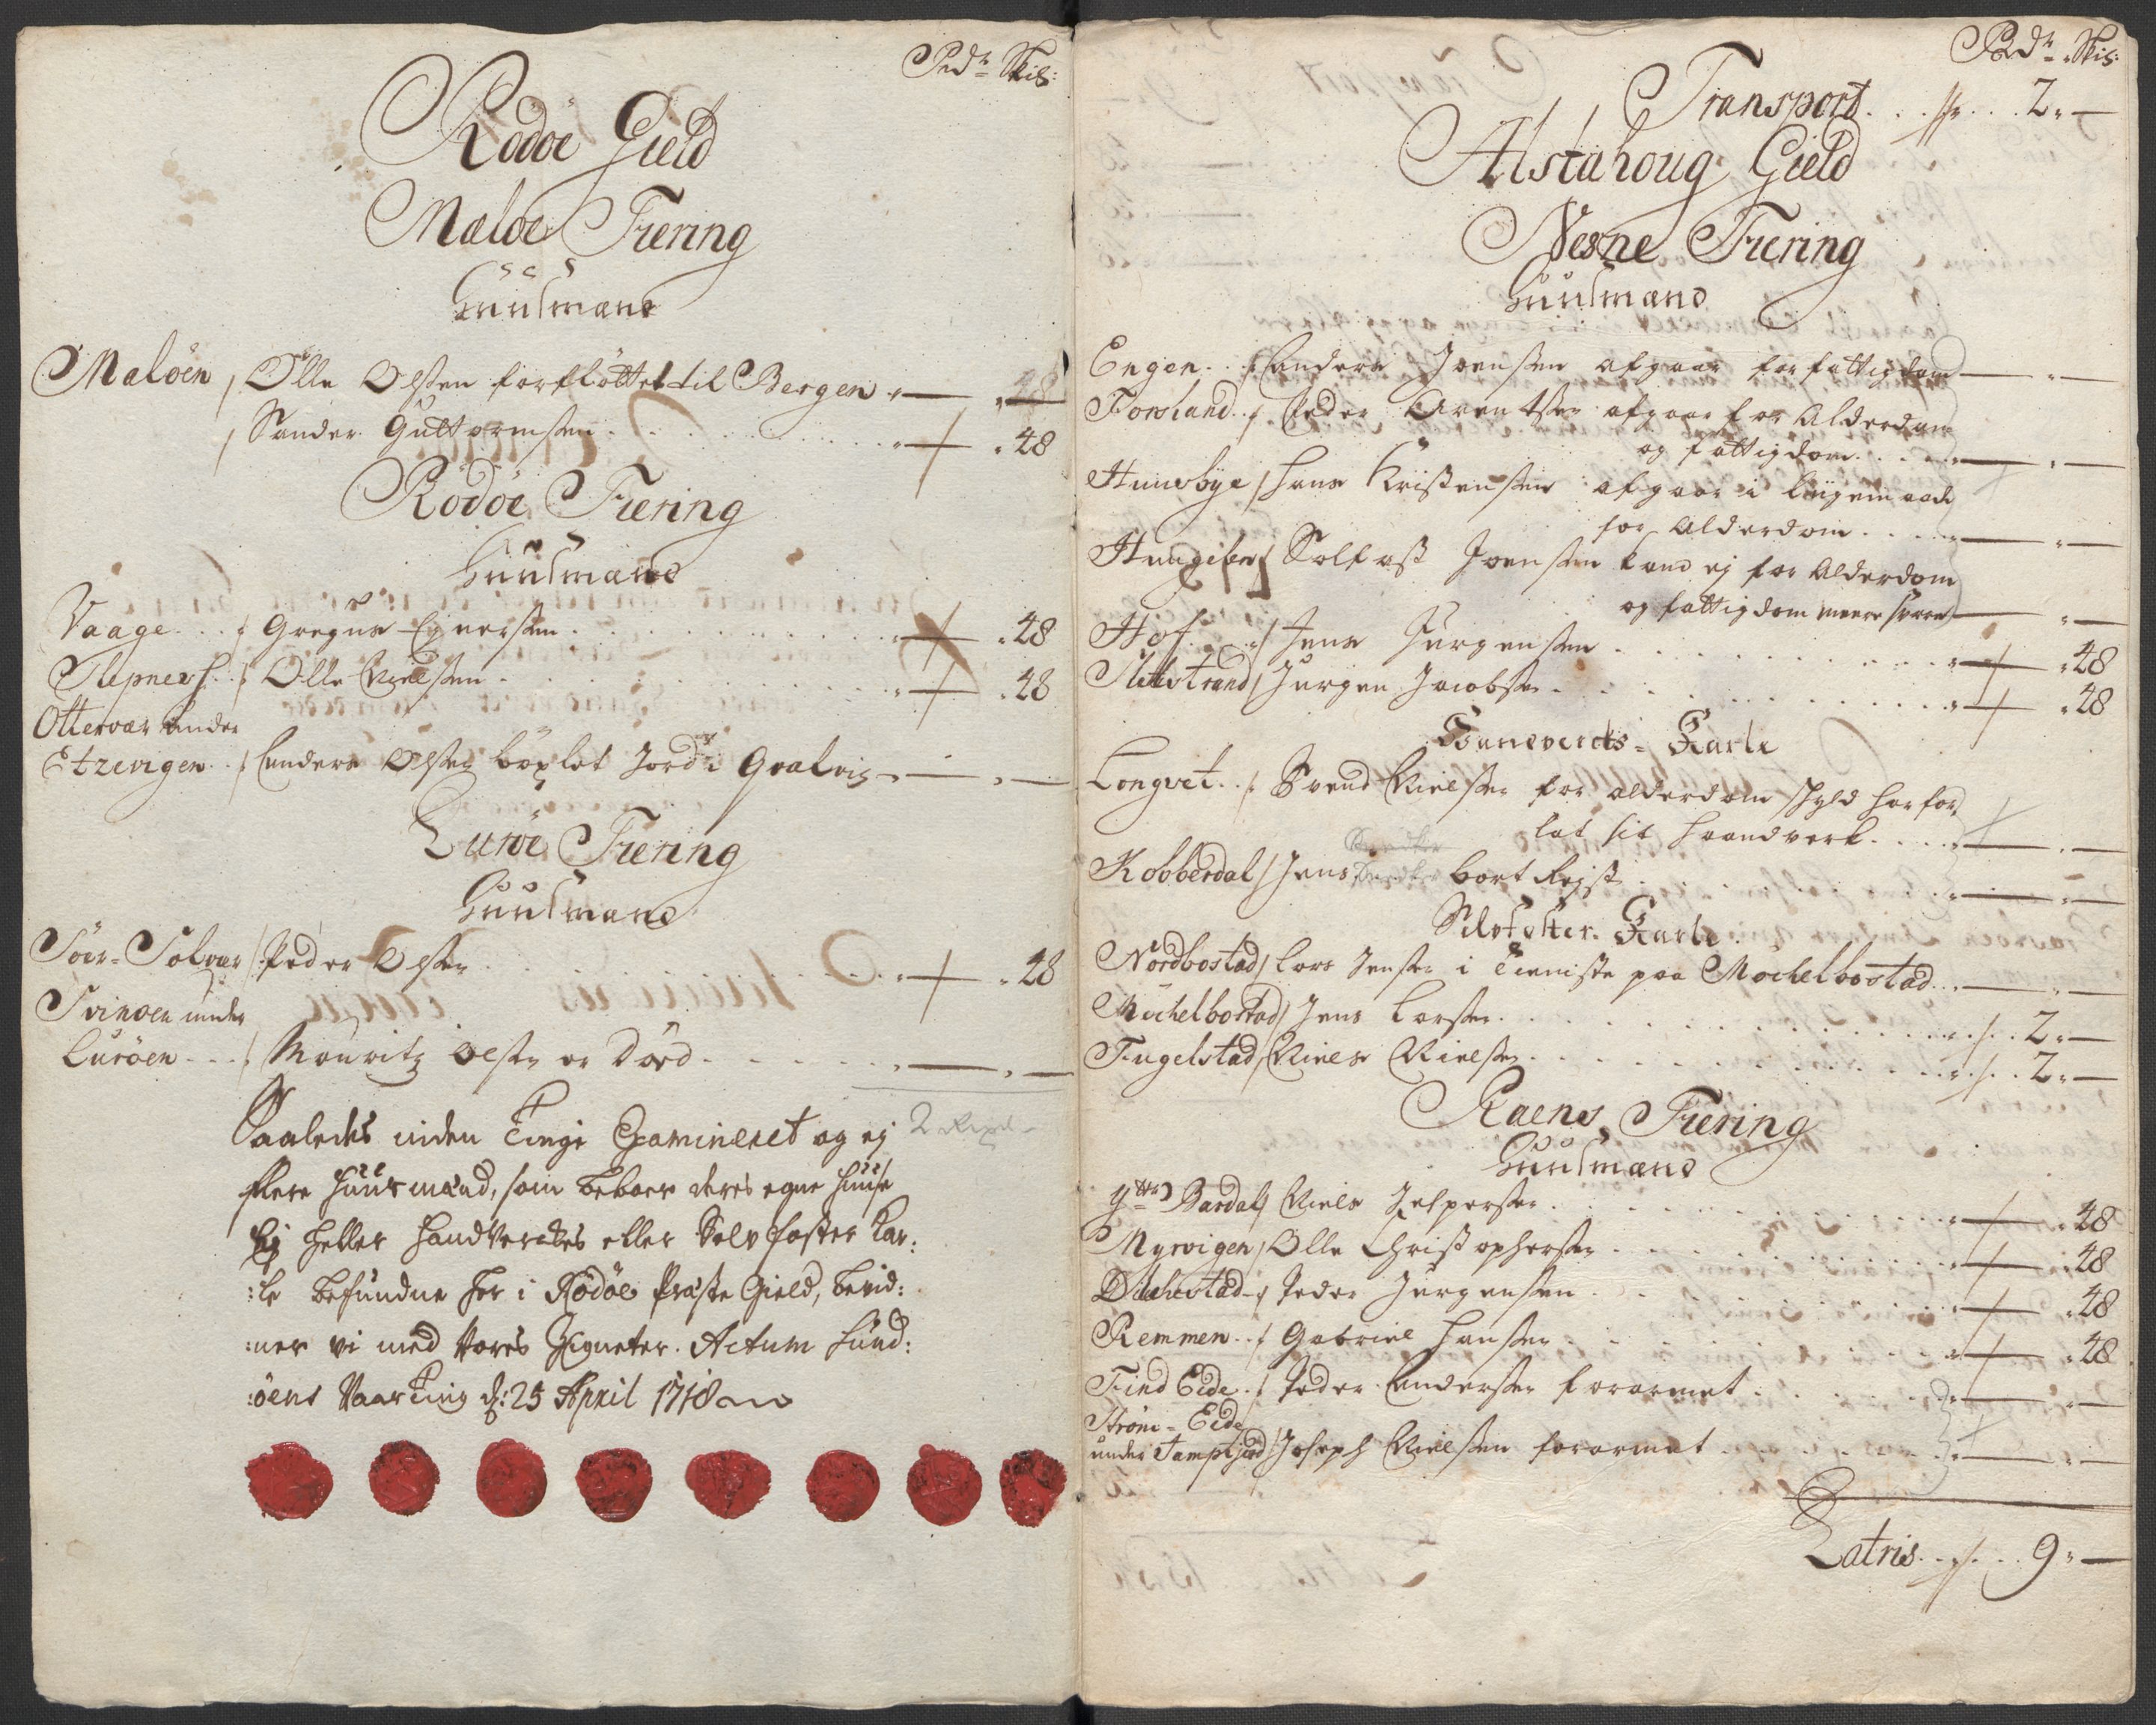 Rdr Skil:
Rödöe Gield
Meløe Fiering
Huusmænd
Meløen / Olle Olsen forfløttet til Bergen - 48
/ Sander Guttormsen . . . 48
Rödöe Fiering
Huusmænd
Vaage . . / Gregus Einersen . . . 48
Slepnes . . / Olle Nielsen . . . 48
Otterver under
Etzevigen . . / Anders Olsen böxlet Jord i Qvalvig - -
Luröe Fiering
Huusmænd
Sör-Solver / Peder Olsen . . . 48
Svinöen under
Luröen - - / Mouritz Olsen er Död - - -
Saaledes inden Tinge Examineret og ej
flere Huusmænd, som beboer deres egne Huuse
Ej heller Handverckes eller Selvfoster Kar:
:le befundne her i Rödöe Præste Gield, bevid:
:ner vi med Vores Zigneter. Actum Lund:
:öens Vaar Ting d: 25 April 1718
2 Rixd
Rdr Skil:
Transport . . . 2 -
Alstahoug Gield
Nesne Fiering
Huusmænd
Engen . . / Anders Joensen afgaar for fattigdom -
Forsland . . / Peder Arentsen afgaar for Alderdom
og fattigdom . . . -
Huusbye / Hans Kristensen afgaar i liigemaade
for Alderdom . . . -
/ Joensen kand ej for Alderdom
og fattigdom meere svare -
Hof . . / Jens Jurgensen . . . 48
Slotstrand / Jurgen Jacobsen . . . 48
Haandvercks-Karle
Longvet . . / Svend Nielsen for alderdom skyld har for
lat sit Haandverk . . . -
Kobberdal / Jens bort Rejst . . . -
Selvfoster Karle
Nordbostad / Lars Jensen i Tieniste paa Mochelbostad . . -
Mochelbostad / Jens Larsen . . . 2 -
Fugelstad / Niels Nielsen . . . 2 -
Raens Fiering
Huusmænd
Yttre Bardal / Niels Jespersen . . . 48
Myrvigen / Olle Christophersen . . . 48
/ Peder Jurgensen . . . 48
Remmen . . / Gabriel Hansen . . . 48
Find Eide . . / Peder Andersen forarmet . . . -
Ström-Eide
under / Joseph Nielsen forarmet . . . -
Latris . . . 9 -